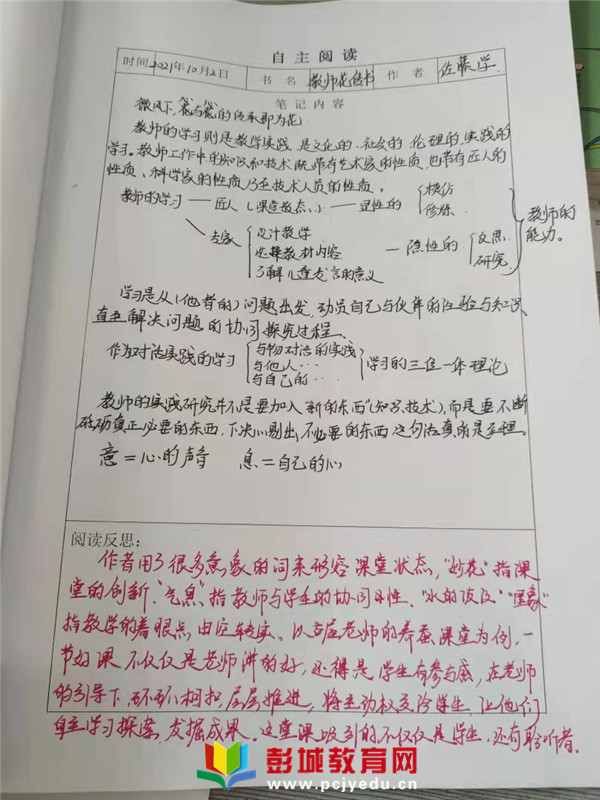 自主阅读
时间 2021年10月2日 书名 教师花传书 作者 佐藤学
笔记内容
微风下,花与花的传承即为花
教师的学习则是教学实践,是文化的、社会的、伦理的、实践的
学习。教师工作中的知识和技术既带有艺术家的性质,也带有匠人的
性质、科学家的性质乃至技术人员的性质。
教师的学习 — 匠人(课堂教态..) — 显性的 模仿 修炼
专家 设计教学 选择教材内容 了解儿童发言的意义 — 隐性的 反思 研究 教师的能力。
学习是从(他者的)问题出发,动员自己与伙伴的经验与知识,
直至解决问题的协同探究过程。
作为对话实践的学习 与物对话的实践 与他人… 与自己的… 学习的三位一体理论
教师的实践研究并不是要加入"新的东西"(知识、技术),而是要不断
砥砺真正必要的东西,下决心剔出不必要的东西 这句话真的是至理。
意=心的声音 息=自己的心
阅读反思:
作者用了很多意象的词来形容课堂状态,"妙花"指课
堂的创新,"气息"指教师与学生的协同性、"水的波纹"
指教学的着眼点由 老师的养蚕课堂为例,一
节好课不仅仅是老师讲的好,还得是学生有参与感,在老师
的引导下,环环相扣,层层推进,将主动权交给学生,让他们
自主学习探索,发掘成果。这堂课吸引的不仅仅是学生,还有聆听者。
彭城教育网
www.pcjyedu.com